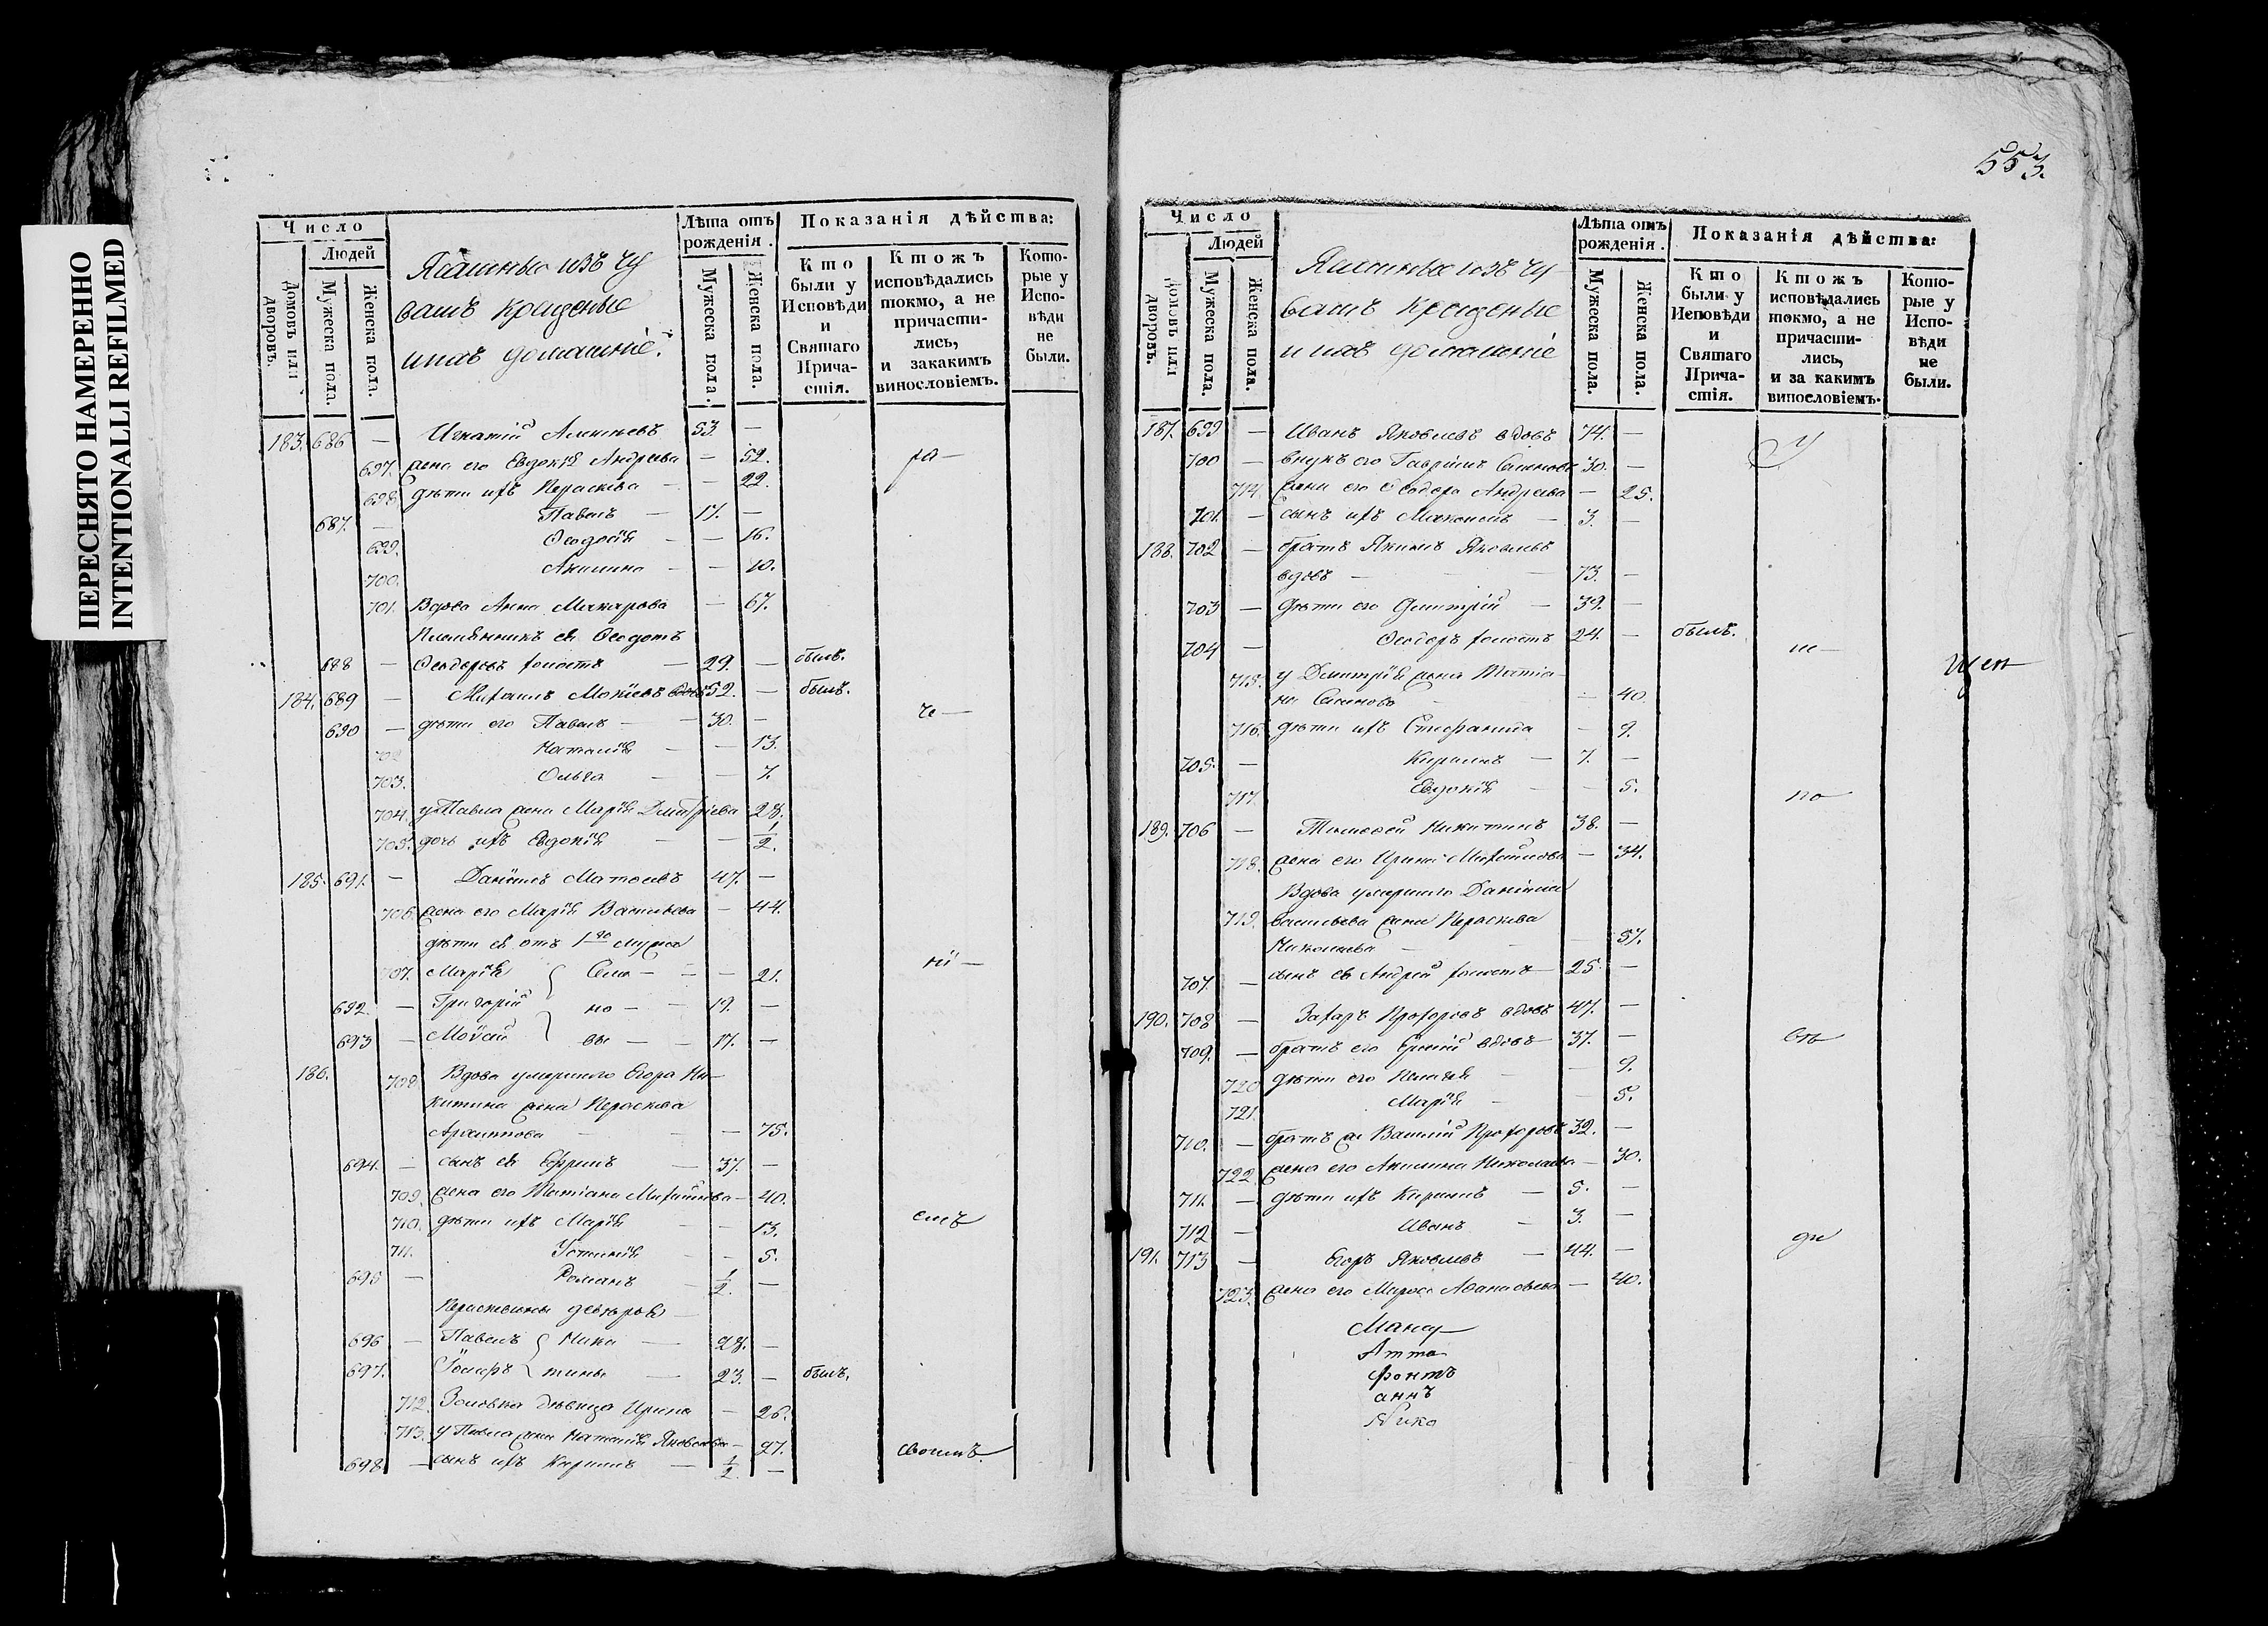 ПЕРЕСНЯТО НАМЕРЕННО
INTENTIONALLI REFILMED
Число
Домовъ или дворовъ.
Людей
Мужеска пола.
Женска пола.
Ясашные изъ чу
вашъ крещеные
и ихъ домашніе.
Лѣта отъ рожденія.
Мужеска пола.
Женска пола.
Показанія дѣйства:
Кто были у Исповѣди и Святаго Прича-стія.
Ктожъ исповѣдались токмо, а не причасти-лись, и закакимъ винословіемъ.
Кото-рые у Испо-вѣди не были.
183. 686 — Игнатій 53. —
697. жена его Евдокія Андреева — 52.
698. дѣти ихъ Параскева — 22.
687. — Павелъ — 17. —
699. Ѳеодосія — 16.
700. Акилина — 10.
701. Вдова Анна Макарова — 67.
Племянникъ ея Ѳеодотъ
688 — Ѳеодоровъ холостъ — 29. — былъ.
184. 689 — Михаилъ вдовъ 52. — былъ.
690 — дѣти его Павелъ — 30. —
702 Наталія — 13.
703. Ольга — 7.
704. у Павла жена Марія Дмитріева 28.
705. дочь ихъ Евдокія — 1/2.
185. 691. — Даніилъ Матвеевъ 47. —
706. жена его Марія Васильева — 44.
дѣти ея отъ 1го мужа
707. Марія Семе — 21.
692. — Григорій но — 19. —
693 — вы — 17. —
186. 708. Вдова умершаго Егора Ни-
китина жена Параскева
— 75.
694. — сынъ ея Ефремъ — 37. —
709. жена его Татіана Михайлова — 40.
710. дѣти ихъ Марія — 13.
711. Устинія — 5.
695 — Романъ — 1/2. —
Параскевины деверья
696 — Павелъ Ники — 28. —
697. тины — 23. — былъ.
712. Золовка дѣвица Ирина — 26.
713. у Павла жена Наталія Яковлева — 27.
698 — сынъ ихъ Кириллъ — 1/2 —
553.
Число
Домовъ или дворовъ.
Людей
Мужеска пола
Женска пола.
Ясашные изъ чу
вашъ крещеные
и ихъ домашніе
Лѣта отъ рожденія.
Мужеска пола.
Женска пола.
Показанія дѣйства:
Кто были у Исповѣди и Святаго Прича-стія.
Ктожъ исповѣдались токмо, а не причасти-лись, и за какимъ винословіемъ.
Кото-рые у Испо-вѣди не были.
187. 699 — Иванъ Яковлевъ вдовъ 74. —
700 — внукъ его Гаврілъ Семеновъ 30. —
714. жена его Ѳеодора Андреева — 25.
701. — сынъ ихъ Максимъ — 3. —
188. 702 — братъ Якимъ Яковлевъ
вдовъ — 73. —
703 — дѣти его Дмитрій — 39. —
704 — Ѳеодоръ холостъ 24. — былъ.
715. у Дмитрія жена Татіа-
на Семенова — 40.
716. дѣти ихъ Стефанида — 9.
705. — Кириллъ — 7. —
717. Евдокія — 5.
189. 706 — Тимоѳей Никитинъ 38. —
718. жена его Ирина Михайлова — 34.
Вдова умершаго Даніила
719. Васильева жена Параскева
Николаева — 57.
707. — сынъ ея Андрей холостъ — 25. —
190. 708 — Захаръ Прохоровъ вдовъ 47. —
709. — братъ его вдовъ — 37. —
720 дѣти его Пелагія — 9.
721. Марія — 5.
710. — братъ же Василій Прохоровъ 32. —
722 жена его Акилина Николаева — 30.
711. — дѣти ихъ Кириллъ — 5. —
712 — Иванъ — 3. —
191. 713 — Егоръ Яковлевъ — 44. —
723. жена его Марѳа Аѳанасьева — 40.